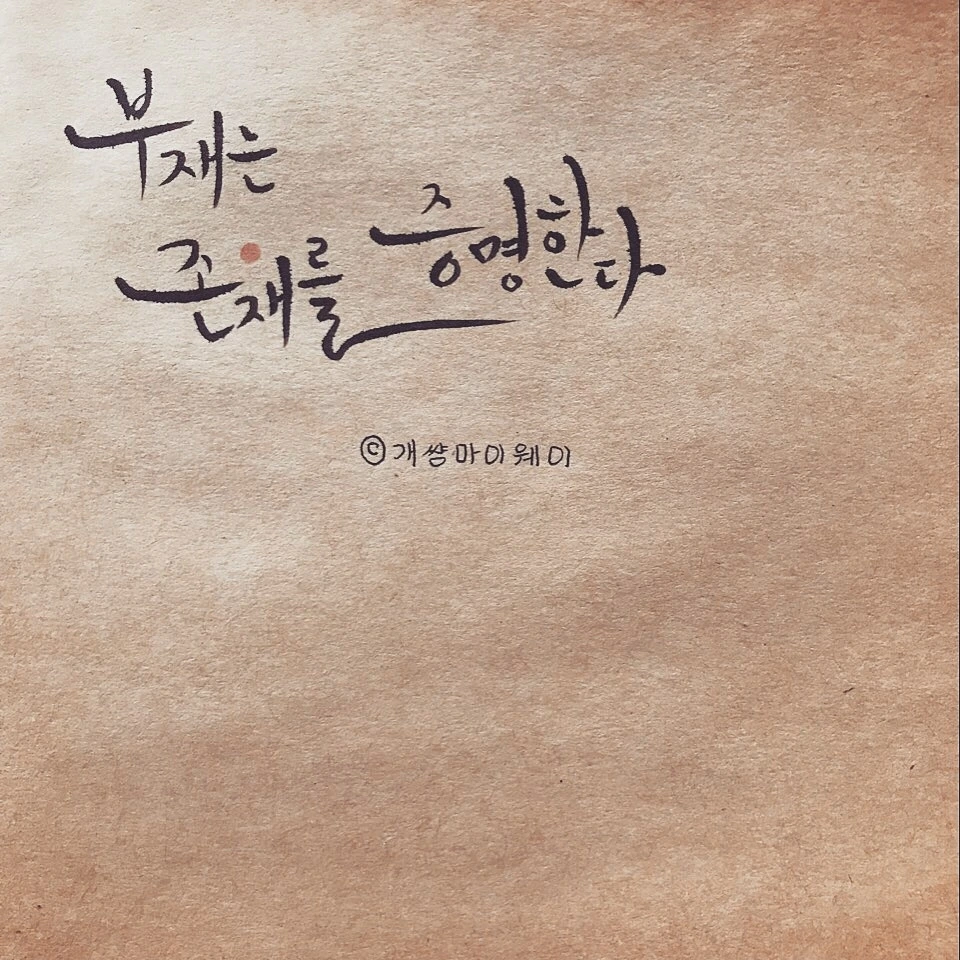 부재는
존재를 증명한다
ⓒ개썅마이웨이